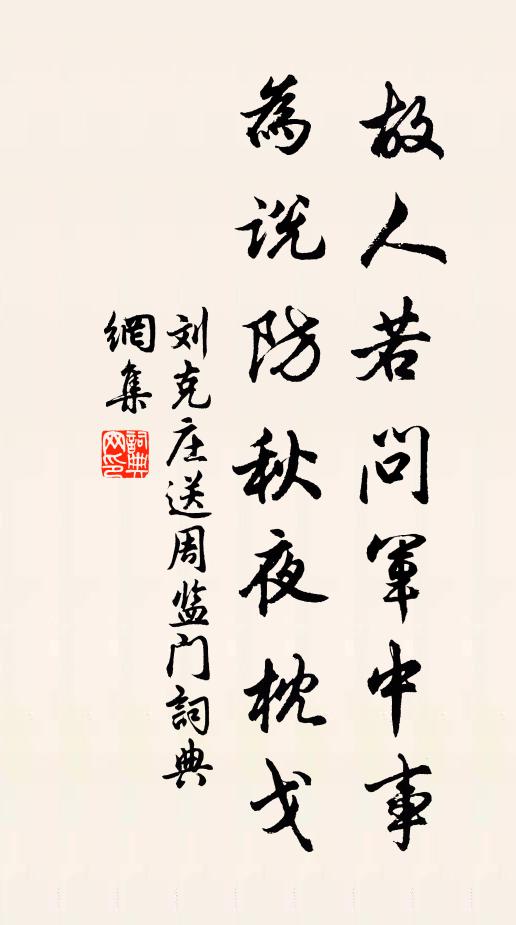 故人若问軍中事
為说防秋夜枕戈
刘克庄送周监门詞典
網集
詞典網印